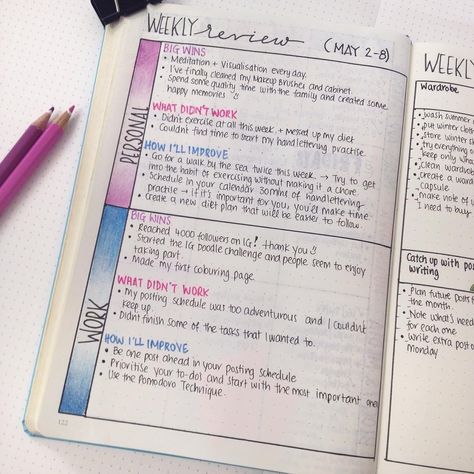 WEEKLY review (MAY 2-8)
PERSONAL
BIG WINS
• Meditation + Visualisation every day.
• I've finally cleaned my Makeup Brushes and cabinet.
• Spend some quality time with the family and created some
happy memories
WHAT DIDN'T WORK
• Didn't exercise at all this week + Messed up my diet
• Couldn't find time to start my handlettering practise.
HOW I'LL IMPROVE
• Go for a walk by the sea twice this week → Try to get
into the habit of exercising without making it a chore.
• Schedule in your calendar 30mins of handlettering
practise → if it's important for you, you'll make time
• Create a new diet plan that will be easier to follow.
WORK
BIG WINS
• Reached 4000 followers on IG! thank you
• Started the IG Doodle Challenge and people seem to enjoy
taking part.
• Made my first colouring page.
WHAT DIDN'T WORK
• My posting schedule was too adventurous and I couldn't
keep up.
• Didn't finish some of the tasks that I wanted to.
HOW I'LL IMPROVE
• Be one post ahead in your posting schedule
• Prioritise your to-dos and start with the most important one
• Use the Pomodoro Technique.
122
WEEKLY
Wardrobe
• wash summer
• put winter
• store winter
• try everything
keep only
• Clean wardrobe
• create a
capsule.
• make note of
I need to buy
Catch up with
writing
• Plan future posts
the month.
• Note what's need
for each one.
• Write extra post
monday